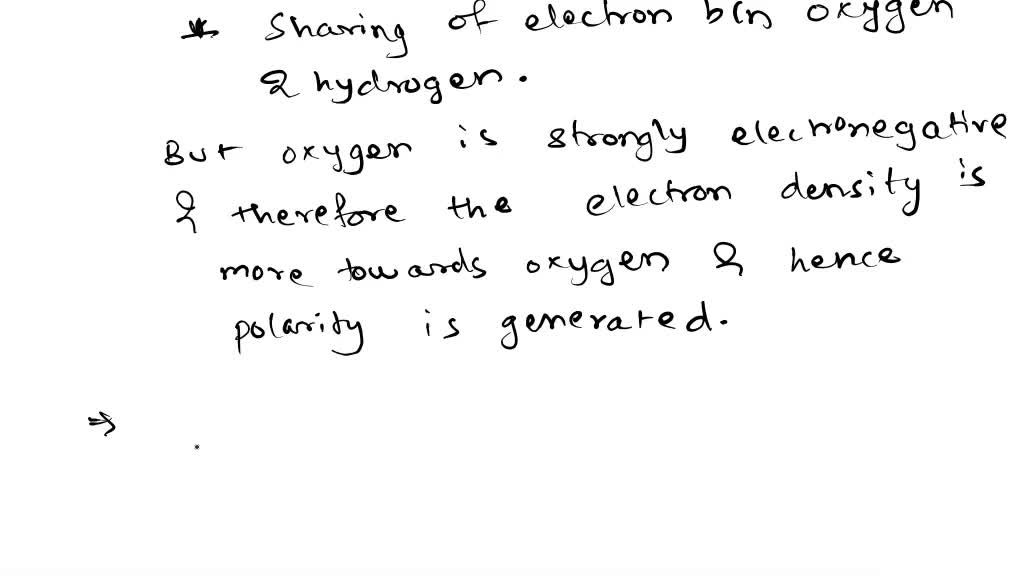 * Sharing of electron b(n oxygen
& hydrogen.
But oxygen is strongly electronegative
& therefore the electron density is
more towards oxygen & hence
polarity is generated.
⇒